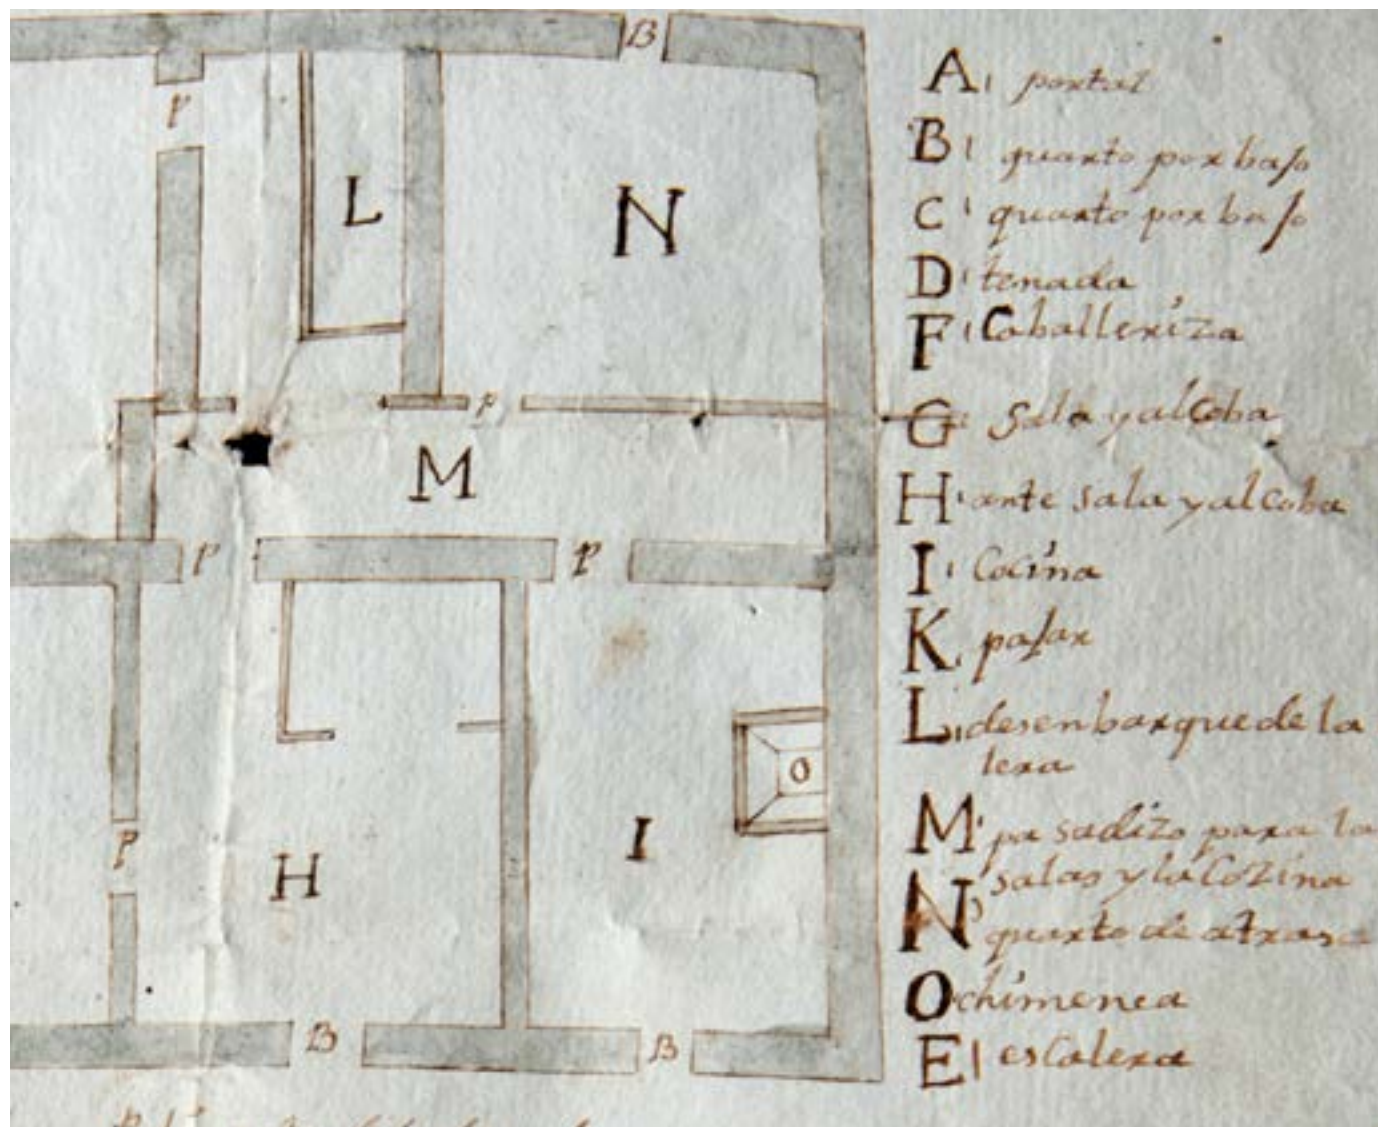 B
P
L
N
P
M
P
P
O
P
H
I
B
B
A, portal
B, quarto por bajo
C, quarto por bajo
D, tenada
F, Caballeriza
G, Sala y alcoba
H, ante sala y alcoba
I, Cocina
K, pajar
L, desenbarque de la
lera
M, pasadizo para la
salas y la Cozina
N, quarto de atras
O chimenea
E, escalera